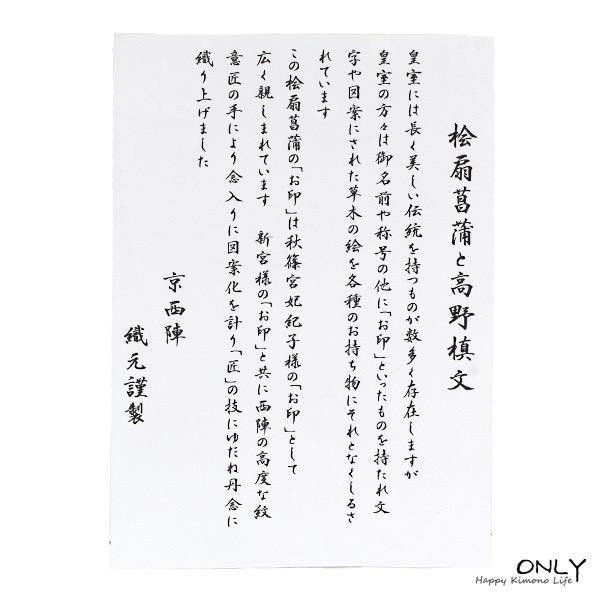 桧扇菖蒲と高野槙文
皇室には長く美しい伝統を持つものが数多く存在しますが
皇室の方々は御名前や称号の他に「お印」といったものを持たれ文
字や図案にされた草木の絵を各種のお持ち物にそれとなくしるさ
れています
この桧扇菖蒲の「お印」は秋篠宮妃紀子様の「お印」として
広く親しまれています 新宮様の「お印」と共に西陣の高度な紋
意匠の手により念入りに図案化を計り「匠」の技にゆだね丹念に
織り上げました
京西陣
織元謹製
ONLY
Happy Kimono Life